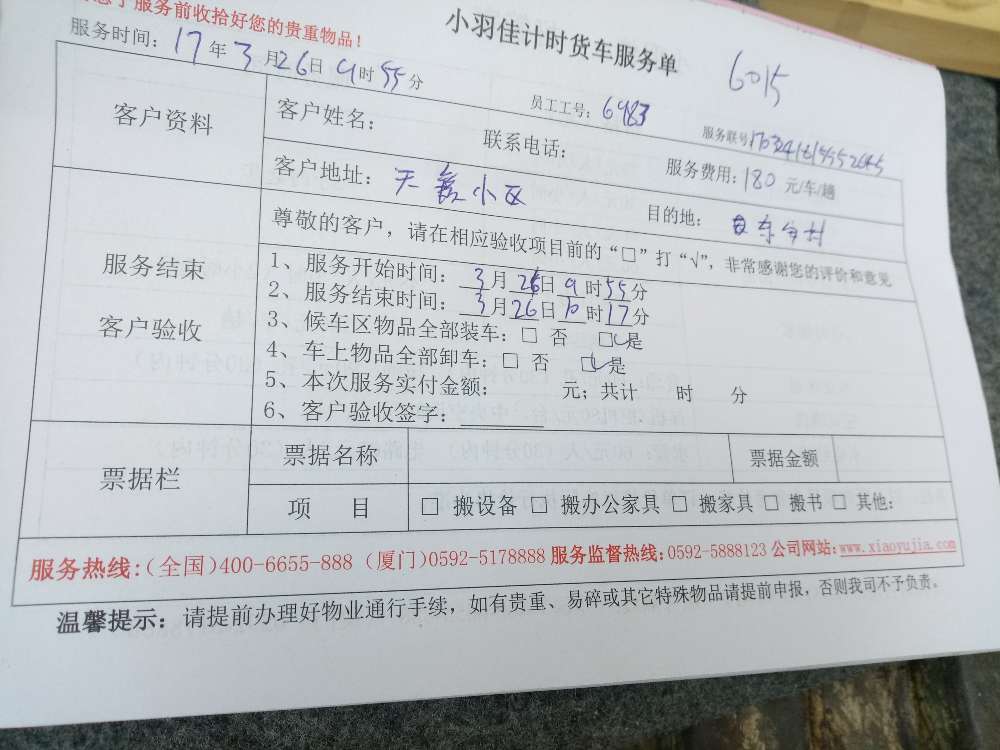 了服务前收拾好您的贵重物品!
小羽佳计时货车服务单
6015
服务时间: 17年3月26日9时55分
员工工号: 6983
服务联号
客户资料
客户姓名:
联系电话:
服务费用: 180 元/车/趟
客户地址: 天鑫小区
目的地:
服务结束
客户验收
尊敬的客户,请在相应验收项目前的“□”打“√”,非常感谢您的评价和意见
1、服务开始时间: 3月26日9时55分
2、服务结束时间: 3月26日10时17分
3、候车区物品全部装车: □ 否 □是
4、车上物品全部卸车: □ 否 □是
5、本次服务实付金额: 元; 共计 时 分
6、客户验收签字:
票据栏
票据名称
票据金额
项 目
□ 搬设备 □ 搬办公家具 □ 搬家具 □ 搬书 □ 其他:
服务热线:(全国)400-6655-888 (厦门)0592-5178888 服务监督热线:0592-5888123 公司网站:www.xiaoyujia.com
温馨提示: 请提前办理好物业通行手续,如有贵重、易碎或其它特殊物品请提前申报,否则我司不予负责。